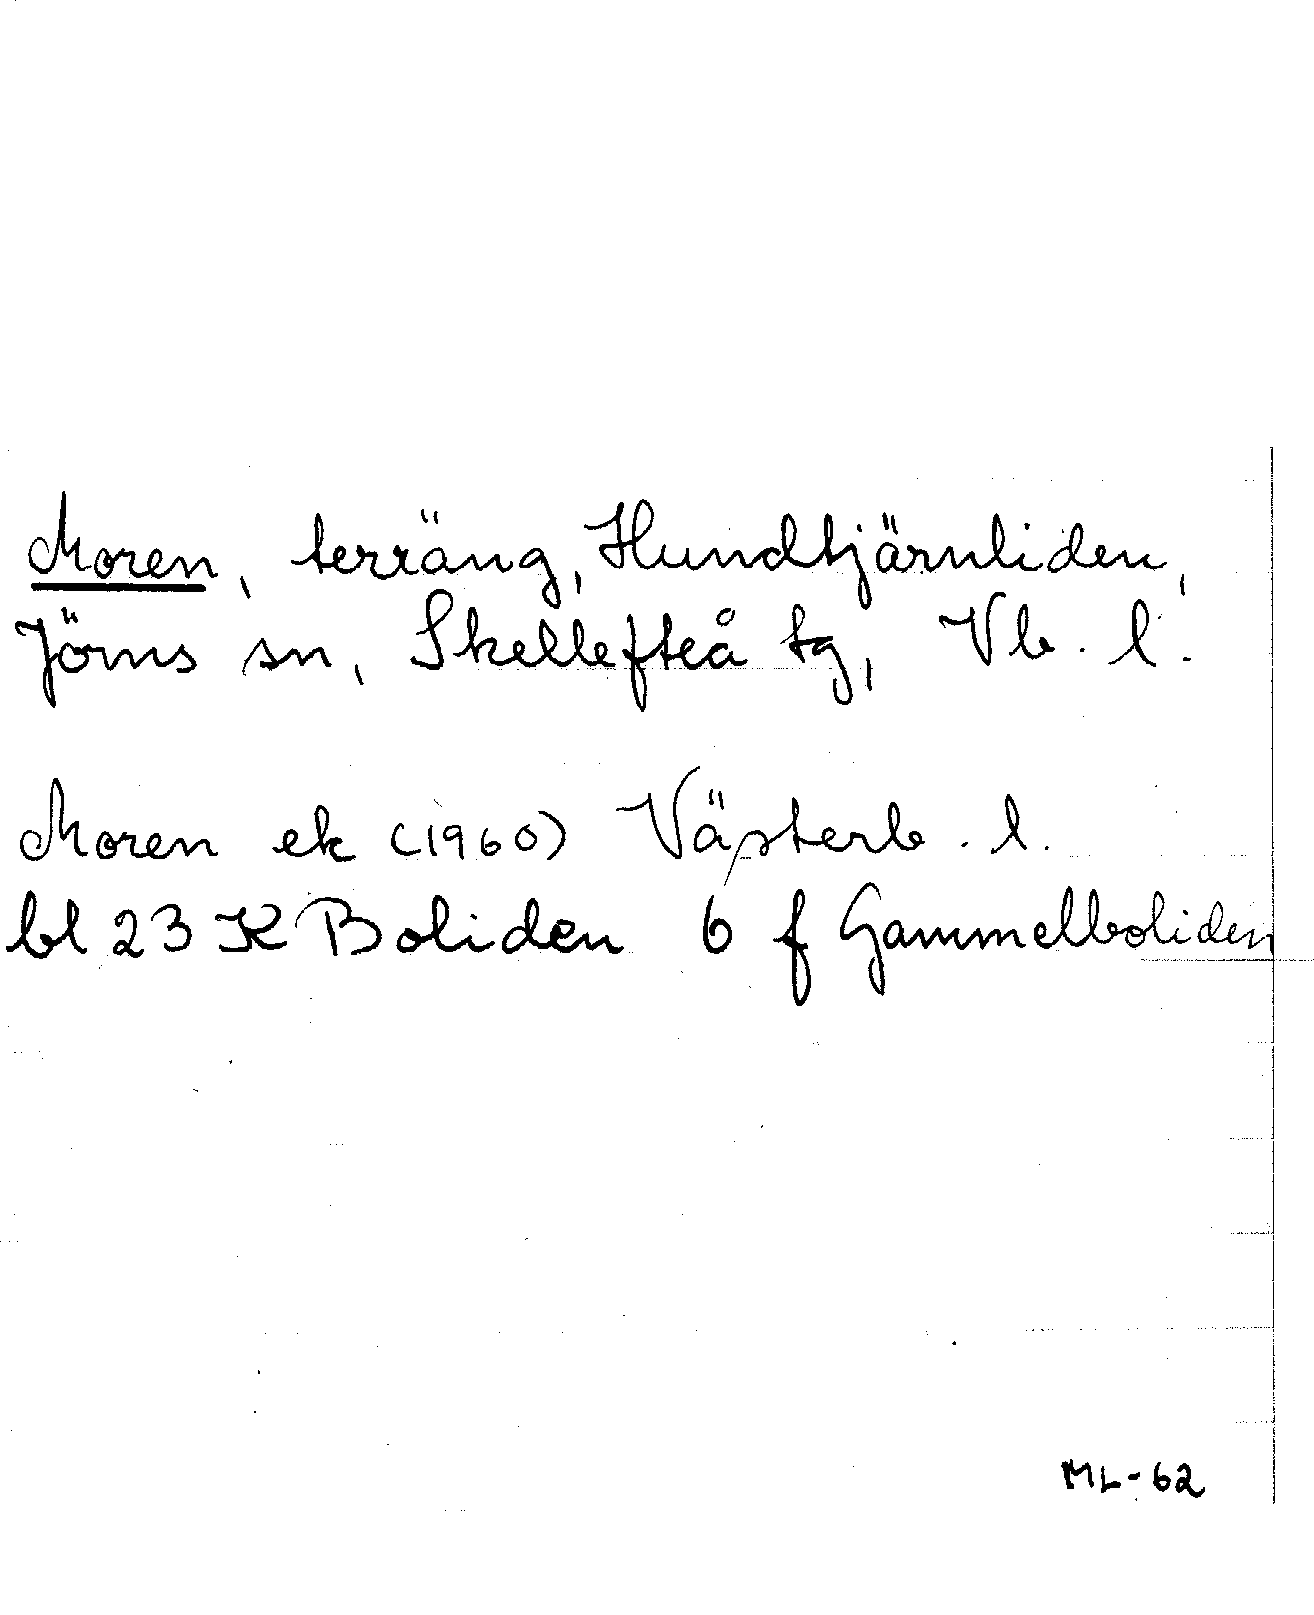 Moren, terräng, Hundtjärnliden,
Jörns sn, Skellefteå tg, Vb. l.
Moren ek (1960) Västerb. l.
bl 23 K Boliden 6 f Gammelboliden
ML-62